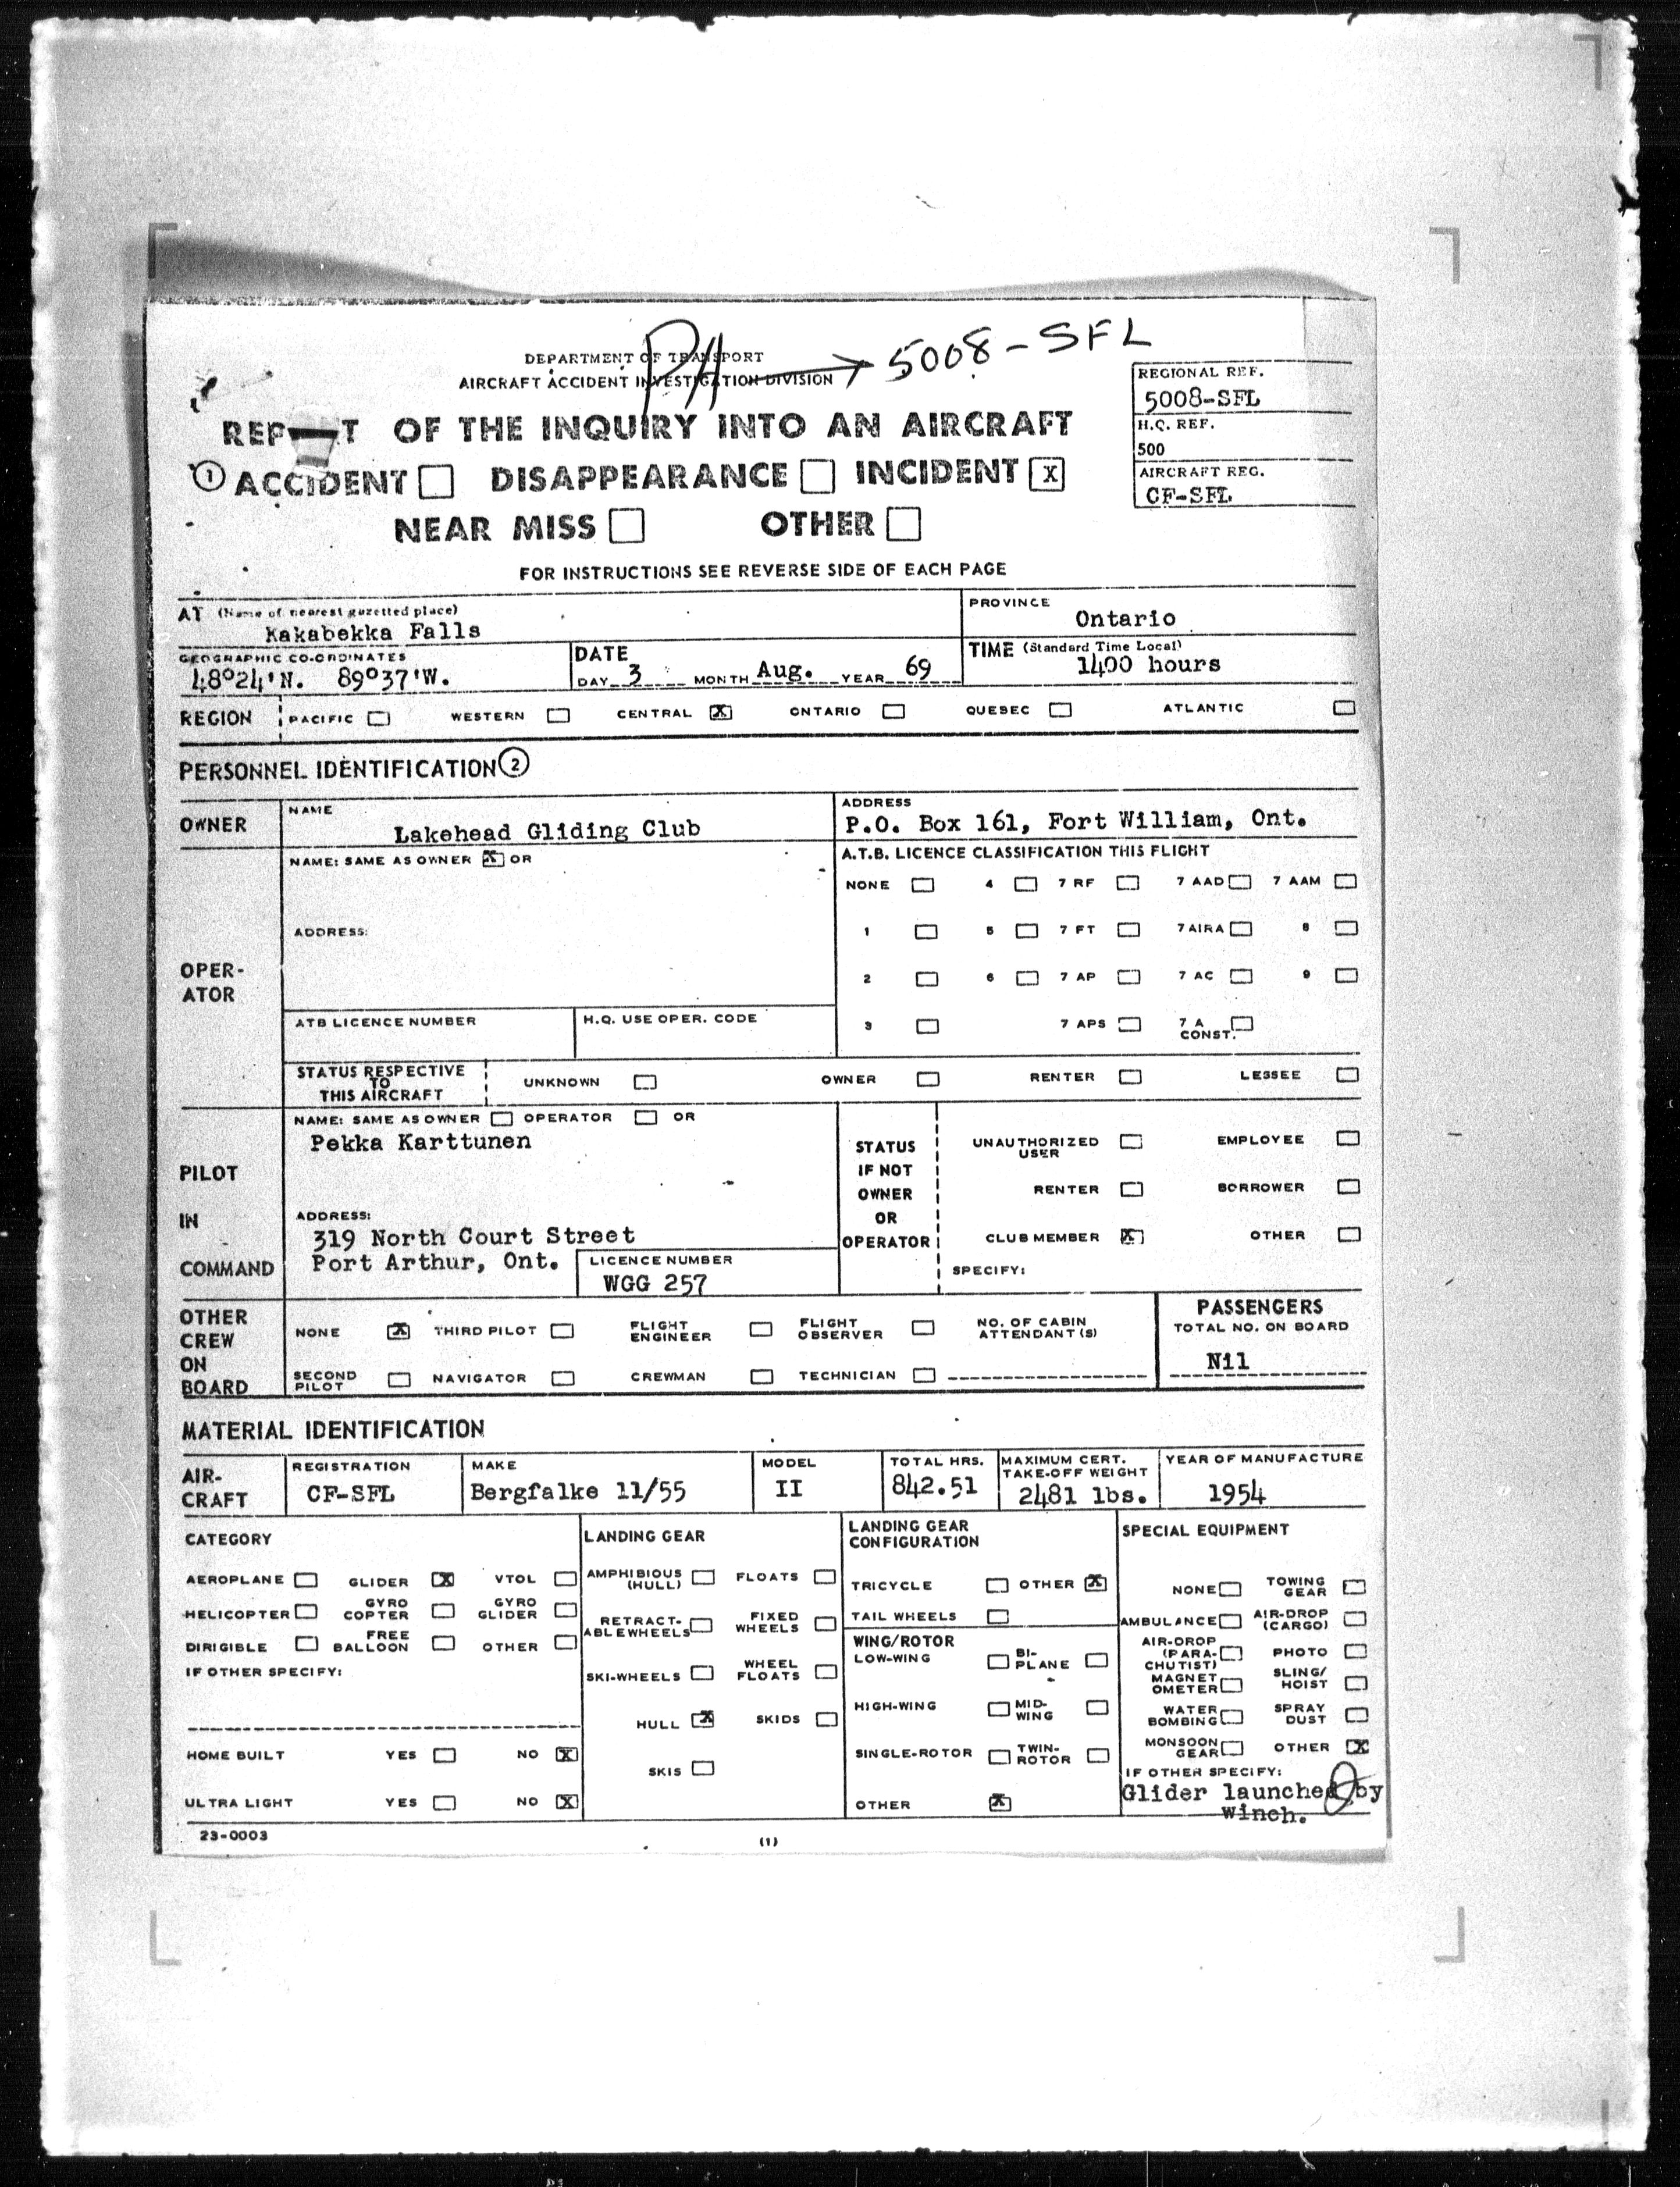 PA → 5008-SFL
DEPARTMENT OF TRANSPORT
AIRCRAFT ACCIDENT INVESTIGATION DIVISION
REGIONAL REF.
5008-SFL
H.Q. REF.
500
AIRCRAFT REG.
CF-SFL
OF THE INQUIRY INTO AN AIRCRAFT
1 ACCIDENT DISAPPEARANCE INCIDENT X
NEAR MISS OTHER
FOR INSTRUCTIONS SEE REVERSE SIDE OF EACH PAGE
AT (Name of nearest gazetted place)
Kakabekka Falls
PROVINCE
Ontario
GEOGRAPHIC CO-ORDINATES
48°24'N. 89°37'W.
DATE
DAY 3 MONTH Aug. YEAR 69
TIME (Standard Time Local)
1400 hours
REGION PACIFIC WESTERN CENTRAL X ONTARIO QUEBEC ATLANTIC
PERSONNEL IDENTIFICATION 2
OWNER
NAME
Lakehead Gliding Club
ADDRESS
P.O. Box 161, Fort William, Ont.
OPER-
ATOR
NAME: SAME AS OWNER X OR
ADDRESS:
A.T.B. LICENCE CLASSIFICATION THIS FLIGHT
NONE 4 7 RF 7 AAD 7 AAM
1 5 7 FT 7 AIRA 8
2 6 7 AP 7 AC 9
3 7 APS 7 A
CONST.
ATB LICENCE NUMBER
H.Q. USE OPER. CODE
STATUS RESPECTIVE
TO
THIS AIRCRAFT
UNKNOWN OWNER RENTER LESSEE
PILOT
IN
COMMAND
NAME: SAME AS OWNER OPERATOR OR
Pekka Karttunen
ADDRESS:
319 North Court Street
Port Arthur, Ont.
LICENCE NUMBER
WGG 257
STATUS
IF NOT
OWNER
OR
OPERATOR
UNAUTHORIZED
USER
EMPLOYEE
RENTER BORROWER
CLUB MEMBER X OTHER
SPECIFY:
OTHER
CREW
ON
BOARD
NONE X THIRD PILOT
FLIGHT
ENGINEER
FLIGHT
OBSERVER
NO. OF CABIN
ATTENDANT(S)
SECOND
PILOT
NAVIGATOR CREWMAN TECHNICIAN
PASSENGERS
TOTAL NO. ON BOARD
Nil
MATERIAL IDENTIFICATION
AIR-
CRAFT
REGISTRATION
CF-SFL
MAKE
Bergfalke 11/55
MODEL
II
TOTAL HRS.
842.51
MAXIMUM CERT.
TAKE-OFF WEIGHT
2481 lbs.
YEAR OF MANUFACTURE
1954
CATEGORY
AEROPLANE GLIDER X VTOL
HELICOPTER
GYRO
COPTER
GYRO
GLIDER
DIRIGIBLE
FREE
BALLOON
OTHER
IF OTHER SPECIFY:
HOME BUILT YES NO X
ULTRA LIGHT YES NO X
LANDING GEAR
AMPHIBIOUS
(HULL)
FLOATS
RETRACT-
ABLEWHEELS
FIXED
WHEELS
SKI-WHEELS
WHEEL
FLOATS
HULL X SKIDS
SKIS
LANDING GEAR
CONFIGURATION
TRICYCLE OTHER X
TAIL WHEELS
WING/ROTOR
LOW-WING
BI-
PLANE
HIGH-WING
MID-
WING
SINGLE-ROTOR
TWIN-
ROTOR
OTHER X
SPECIAL EQUIPMENT
NONE
TOWING
GEAR
AMBULANCE
AIR-DROP
(CARGO)
AIR-DROP
(PARA-
CHUTIST)
PHOTO
MAGNET
OMETER
SLING/
HOIST
WATER
BOMBING
SPRAY
DUST
MONSOON
GEAR
OTHER X
IF OTHER SPECIFY:
Glider launched by
winch.
23-0003
(1)